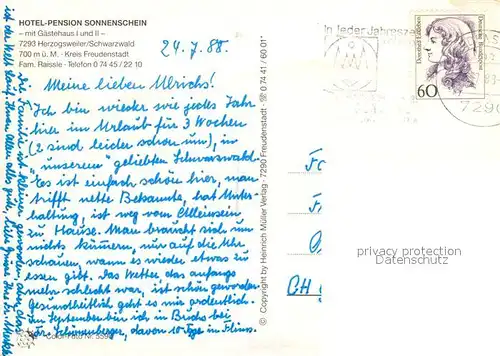 HOTEL-PENSION SONNENSCHEIN
– mit Gästehaus I und II –
7293 Herzogsweiler/Schwarzwald
700 m ü. M. · Kreis Freudenstadt
Fam. Raissle · Telefon 0 74 45 / 22 10
24.7.88.
Meine lieben Ulrichs!
Ich bin wieder wie jedes Jahr
hier im Urlaub für 3 Wochen
(2 sind leider schon um), in
"unserem" geliebten Schwarzwald.
Es ist einfach schön hier, man
trifft nette Bekannte, hat Unter-
haltung, ist weg vom Alleinsein
zu Hause. Man braucht sich um
nichts kümmern, nur auf die Uhr
schauen, wann es wieder etwas zu
essen gibt. Das Wetter das anfangs
mehr schlecht war, ist schön geworden.
Gesundheitlich geht es mir ordentlich.
Im September bin ich in Brichs bei
Schönenberger, davon 10 Tage in Flims.
Die Familie ist kleiner geworden, aber das
ist die Welt Lauf. Ihnen Allen alles gute, liebe Grüsse Ihre
Color-Foto Nr.
© Copyright by Heinrich Müller Verlag · 7290 Freudenstadt · ☎ 0 74 41 / 60 01
In jeder Jahresz
Dorothea Erxleben
Deutsche Bundespost
60
7290
CH
privacy protection
Datenschutz